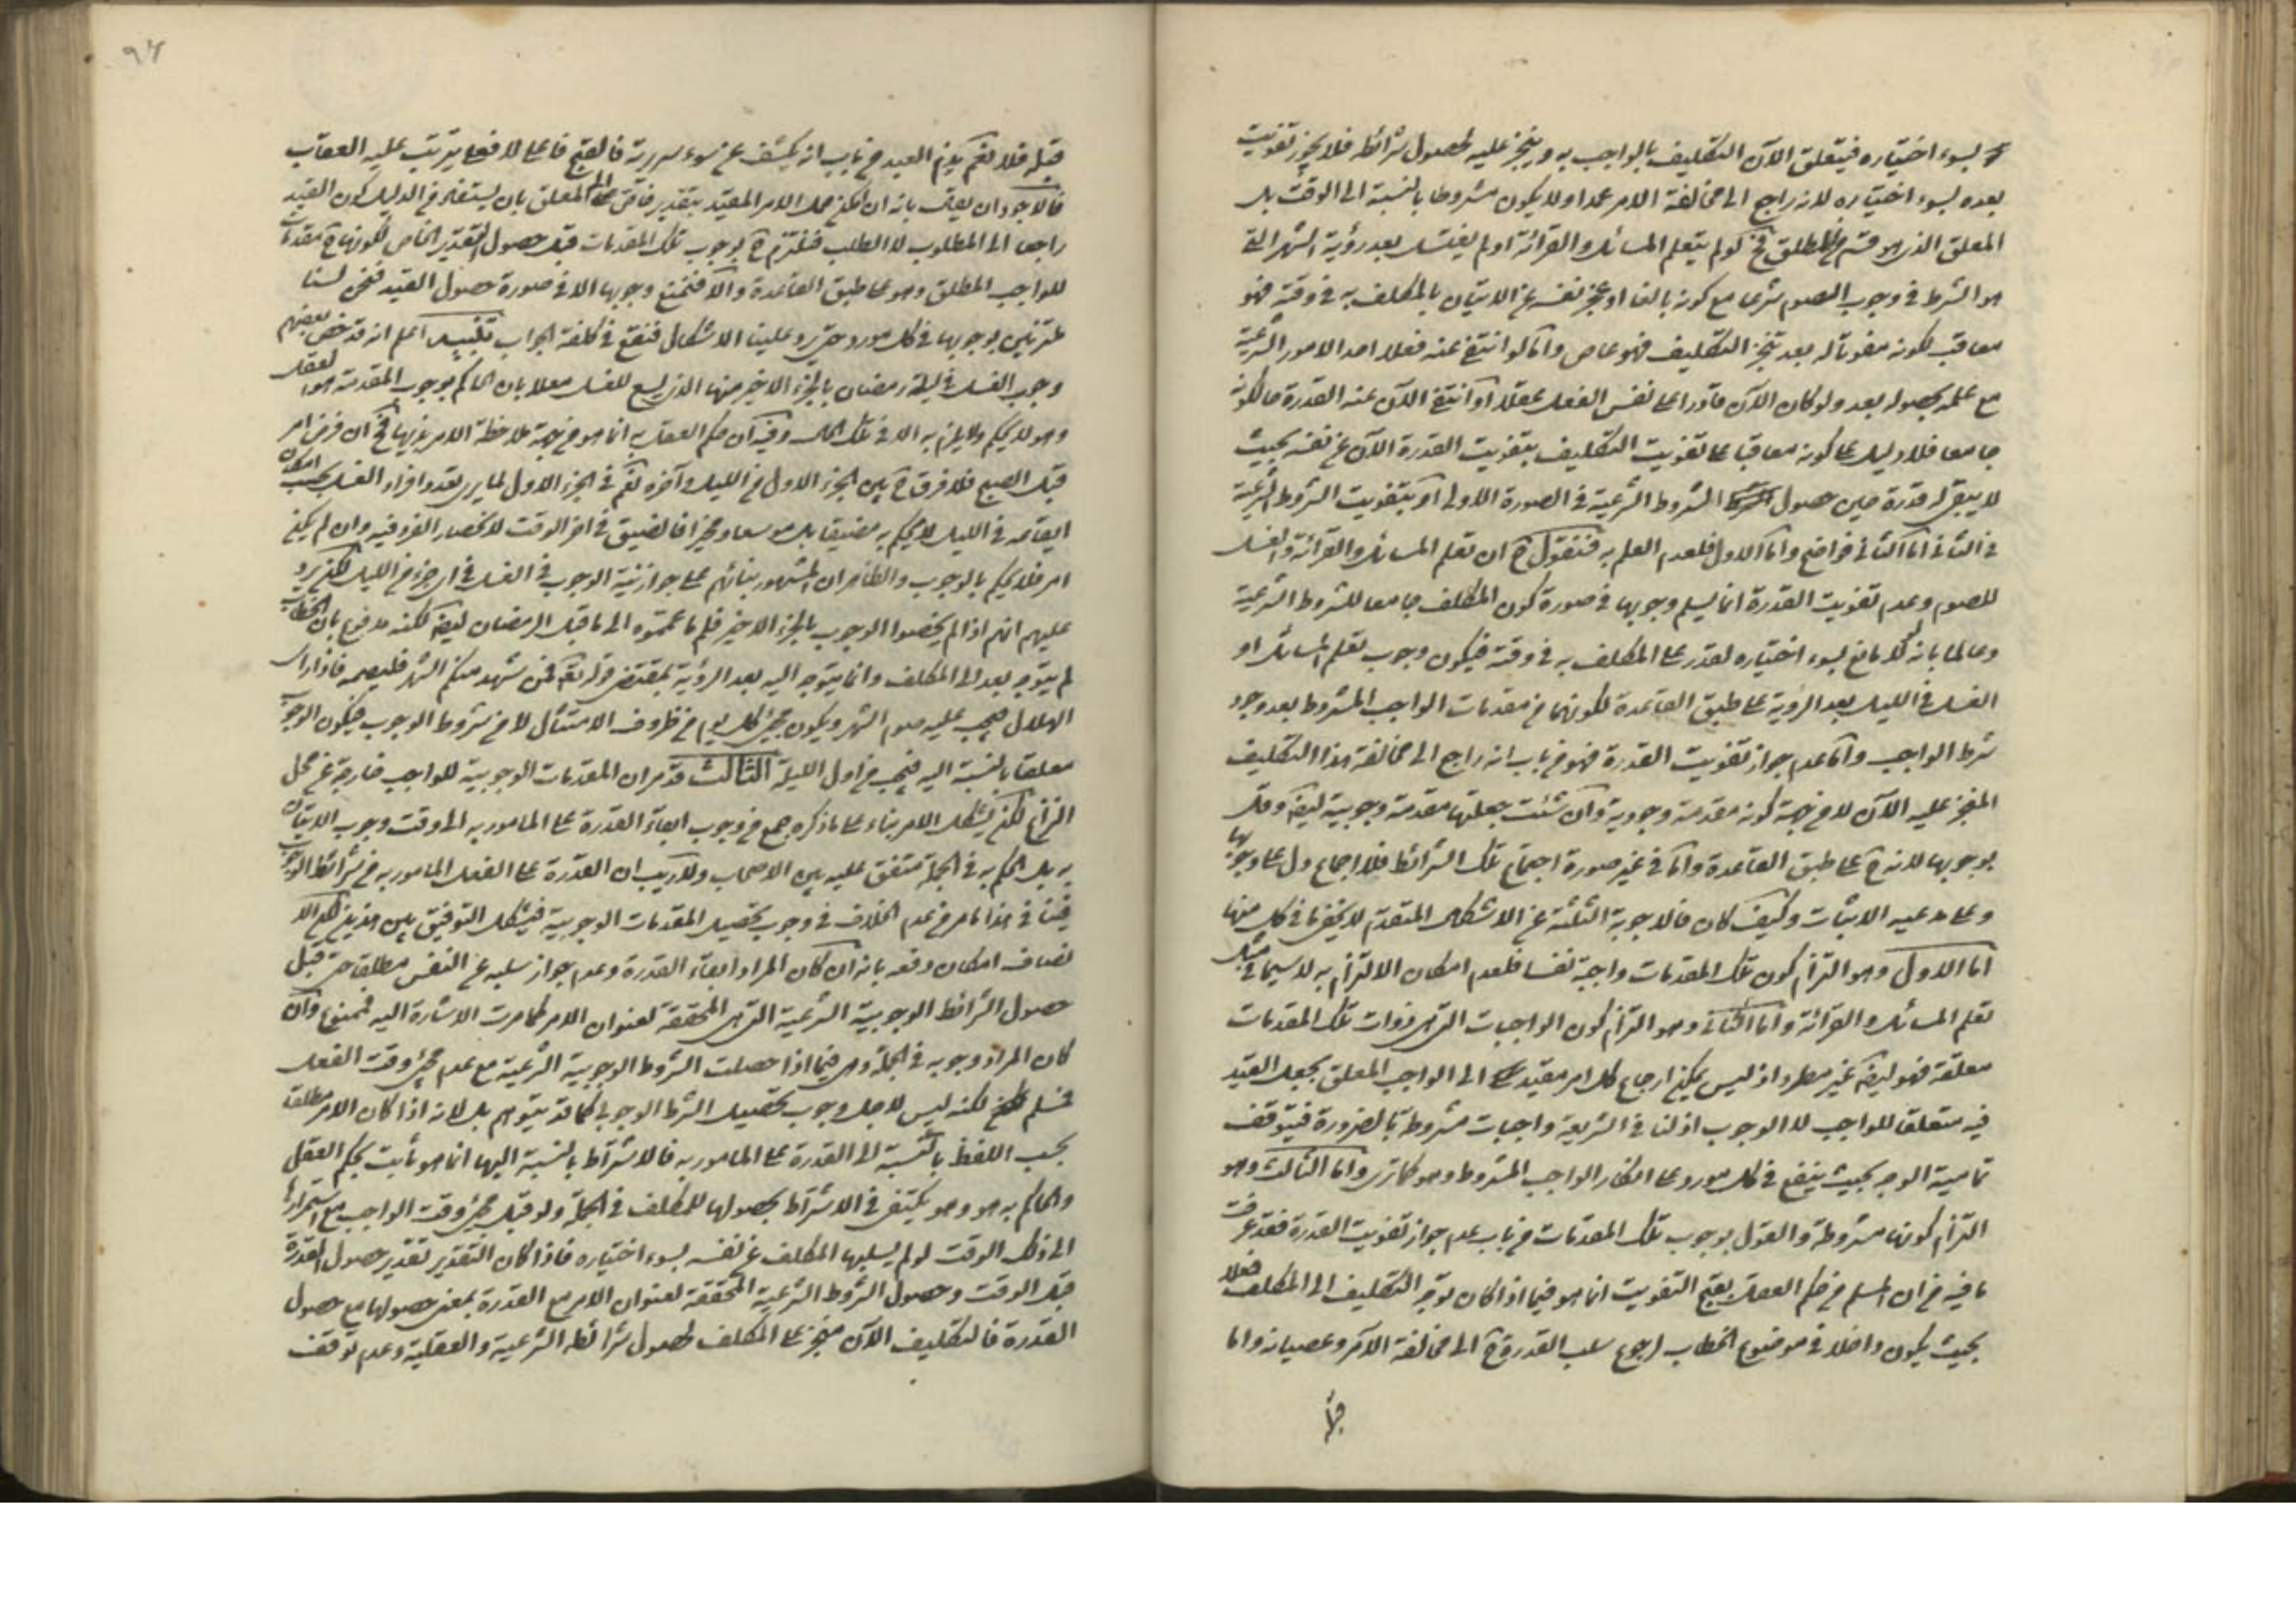 بسوء اختياره فيتعلق الآن التكليف بالواجب به وينجز عليه لحصول شرائطه فلا يجوز تفويت
بعده بسوء اختياره لانه راجع الى مخالفة الامر عمدا ولا يكون مشروطا بالنسبة الى الوقت بل
المعلق الذى هو قسم من المطلق فح لو لم يتعلم المسائل والقرائة او لم يغتسل بعد رؤية الشهر التى
هو الشرط فى وجوب الصوم شرعا مع كونه بالغا او عجز نفسه عن الاتيان بالمكلف به فى وقته فهو
معاقب لكونه مفوتا له بعد تنجز التكليف فهو عاص واما لو انتفى عنه فعلا احد الامور الشرعية
مع علمه بحصوله بعد ولو كان الآن قادرا على نفس الفعل عقلا او انتفى الآن عنه القدرة حال كونه
جامعا فلا دليل على كونه معاقبا على تفويت التكليف بتفويت القدرة الآن عن نفسه بحيث
لا يبقى له قدرة حين حصول الشروط الشرعية فى الصورة الاولى او بتفويت الشروط الشرعية
فى الثانى اما الثانى فواضح واما الاول فلعدم العلم به فنقول ح ان تعلم المسائل والقرائة والغسل
للصوم وعدم تفويت القدرة انما يسلم وجوبها فى صورة كون المكلف جامعا للشروط الشرعية
وعالما بانه لولا مانع بسوء اختياره لقدر على المكلف به فى وقته فيكون وجوب تعلم المسائل او
الغسل فى الليل بعد الرؤية على طبق القاعدة لكونها من مقدمات الواجب المشروط بعد وجود
شرط الواجب واما عدم جواز تفويت القدرة فهو من باب انه راجع الى مخالفة هذا التكليف
المنجز عليه الآن لا من جهة كونه مقدمة وجودية وان شئت جعلتها مقدمة وجوبية ايضا وقل
بوجوبها لانه ح على طبق القاعدة واما فى غير صورة اجتماع تلك الشرائط فلا اجماع دل على وجوبها
وعلى مدعيه الاثبات وكيف كان فالاجوبة الثلثة عن الاشكال المتقدم لا يخفى ما فى كل منها
اما الاول وهو التزام كون تلك المقدمات واجبة نفسا فلعدم امكان الالتزام به لا سيما فى مثل
تعلم المسائل والقرائة واما الثانى وهو التزام كون الواجبات التى هى ذوات تلك المقدمات
معلقة فهو ايضا غير مطرد اذ ليس يمكن ارجاع كل امر مقيد الى الواجب المعلق بجعل القيد
فيه متعلقا للواجب لا الوجوب اذ لنا فى الشريعة واجبات مشروطة بالضرورة فيتوقف
تمامية الوجه بحيث ينفع فى كل مورد على انكار الواجب المشروط وهو كما ترى واما الثالث وهو
التزام كونها مشروطة والقول بوجوب تلك المقدمات من باب عدم جواز تفويت القدرة فقد عرفت
ما فيه من ان المسلم من حكم العقل بقبح التفويت انما هو فيما اذا كان توجه التكليف الى المكلف فعلا
بحيث يكون داخلا فى موضوع الخطاب لرجوع سلب القدرة ح الى مخالفة الآمر وعصيانه واما
قبله فلا نعم يذم العبد من باب انه يكشف عن سوء سريرته فالقبح فاعلى لا فعلى يترتب عليه العقاب
فالاجود ان يقال بانه ان امكن حمل الامر المقيد بتقدير خاص على المعلق بان يستفاد من الدليل كون القيد
راجعا الى المطلوب لا الطلب فنلتزم ح بوجوب تلك المقدمات قبل حصول التقدير الخاص لكونها ح مقدمات
للواجب المطلق وهو على طبق القاعدة والا فنمنع وجوبها الا فى صورة حصول القيد فنحن لسنا
ملتزمين بوجوبها فى كل مورد حتى يرد علينا الاشكال فنقع فى كلفة الجواب تنبيه اعلم انه قد خص بعضهم
وجوب الغسل فى ليلة رمضان بالجزء الاخير منها الذى يسع للغسل معللا بان الحاكم بوجوب المقدمة هو العقل
وهو لا يحكم ولا يلزم به الا فى تلك الحال وفيه ان حكم العقل به انما هو من جهة ملاحظة الامر بذيها فح ان فرض امر
قبل الصبح فلا فرق ح بين الجزء الاول من الليل وآخره نعم فى الجزء الاول لما يرى تعدد افراد الغسل بحسب امكان
ايقاعه فى الليل لا يحكم به مضيقا بل موسعا ومخيرا فالضيق فى آخر الوقت لانحصار الفرد فيه وان لم يكن
امر فلا يحكم بالوجوب والظاهر ان المشهور بنائهم على جواز نية الوجوب فى الغسل فى اى جزء من الليل لكن يرد
عليهم انهم اذا لم يخصوا الوجوب بالجزء الاخير فلم ما عمموه الى ما قبل الرمضان ايضا لكنه مدفوع بان الخطاب
لم يتوجه بعد الى المكلف وانما يتوجه اليه بعد الرؤية بمقتضى قوله تعالى فمن شهد منكم الشهر فليصمه فاذا راى
الهلال فيجب عليه صوم الشهر ويكون مجئ كل يوم من ظروف الامتثال لا من شروط الوجوب فيكون الوجوب
معلقا بالنسبة اليه فيجب من اول الليلة الثالث قد مر ان المقدمات الوجوبية للواجب خارجة عن محل
النزاع لكن يشكل الامر بناء على ما ذكره جمع من وجوب ابقاء القدرة على المامور به الى وقت وجوب الاتيان
به بل الحكم به فى الجملة متفق عليه بين الاصحاب ولا ريب ان القدرة على الفعل المامور به من شرائط الوجوب
فينافى هذا ما مر من عدم الخلاف فى وجوب تحصيل المقدمات الوجوبية فيشكل التوفيق بين هذين لكن الا
نصاف امكان دفعه بانه ان كان المراد ابقاء القدرة وعدم جواز سلبه عن النفس مطلقا حتى قبل
حصول الشرائط الوجوبية الشرعية التى هى المحققة لعنوان الامر كما مرت الاشارة اليه فممنوع وان
كان المراد وجوبه فى الجملة وهى فيما اذا حصلت الشروط الوجوبية الشرعية مع عدم مجئ وقت الفعل
فمسلم لكنه ليس لاجل وجوب تحصيل الشرط الوجوبى كما قد يتوهم بل لانه اذا كان الامر مطلقا
بحسب اللفظ بالنسبة الى القدرة على المامور به فالاشتراط بالنسبة اليها انما هو ثابت بحكم العقل
والحاكم به هو وهو يكتفى فى الاشتراط بحصولها للمكلف فى الجملة ولو قبل مجئ وقت الواجب مع استمرارها
الى ذلك الوقت لو لم يسلبها المكلف عن نفسه بسوء اختياره فاذا كان التقدير تقدير حصول القدرة
قبل الوقت وحصول الشروط الشرعية المحققة لعنوان الامر مع القدرة بمعنى حصولها مع حصول
القدرة فالتكليف الآن منجز على المكلف لحصول شرائطه الشرعية والعقلية وعدم توقف